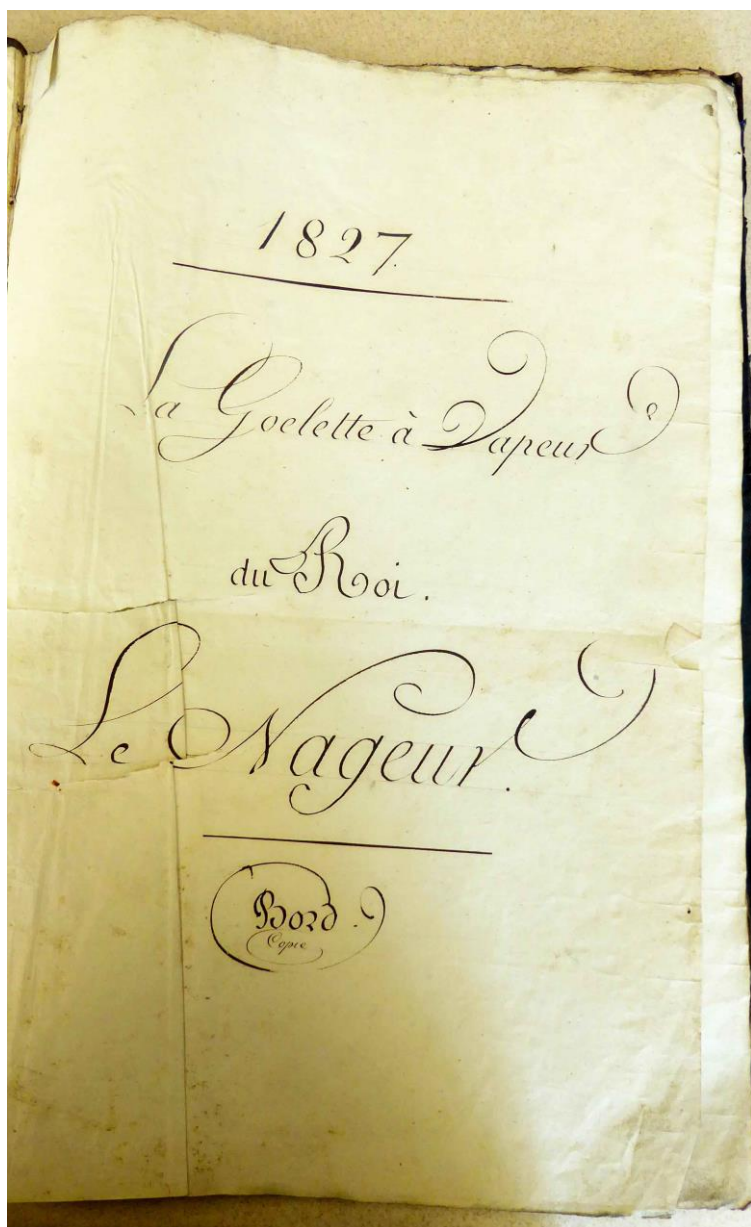 1827.
La Goelette à Vapeur
du Roi.
Le Nageur.
Bord.
Copie